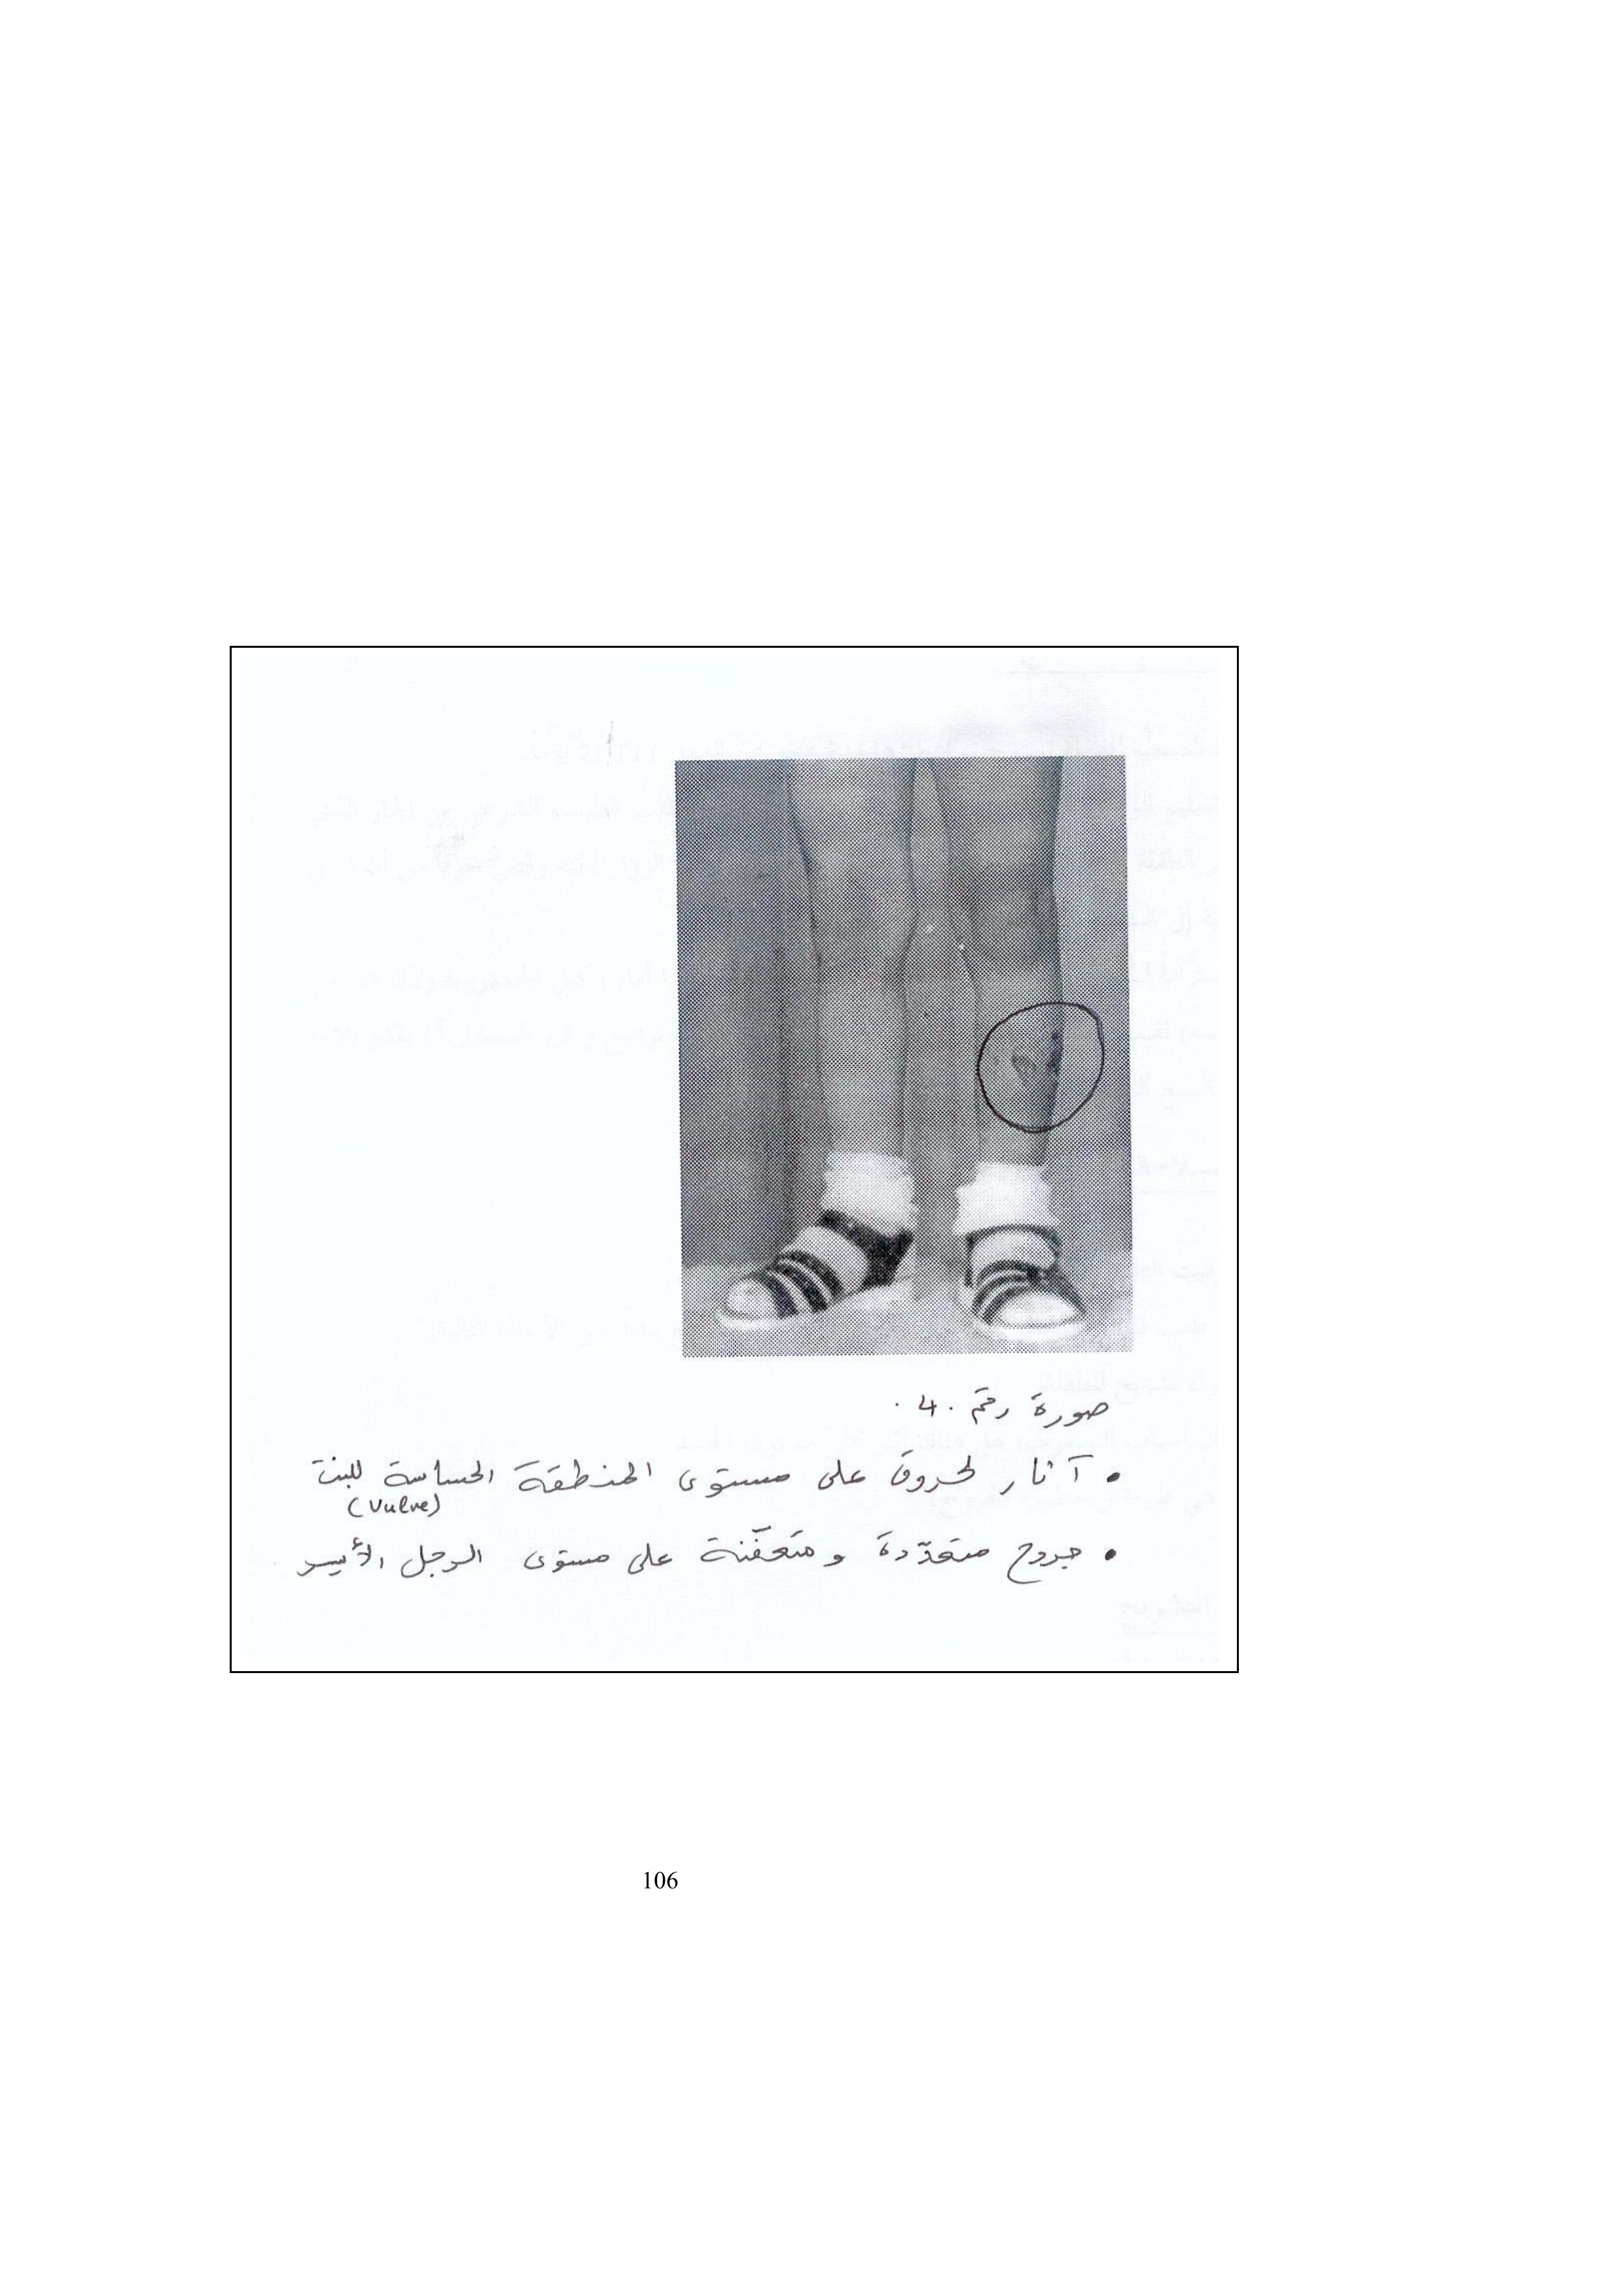 صورة رقم .4.
• آثار لحروق على مستوى المنطقة الحساسة للبنت
(vulve)
• جروح متعدّدة و متعفّنة على مستوى الرجل الأيسر
106